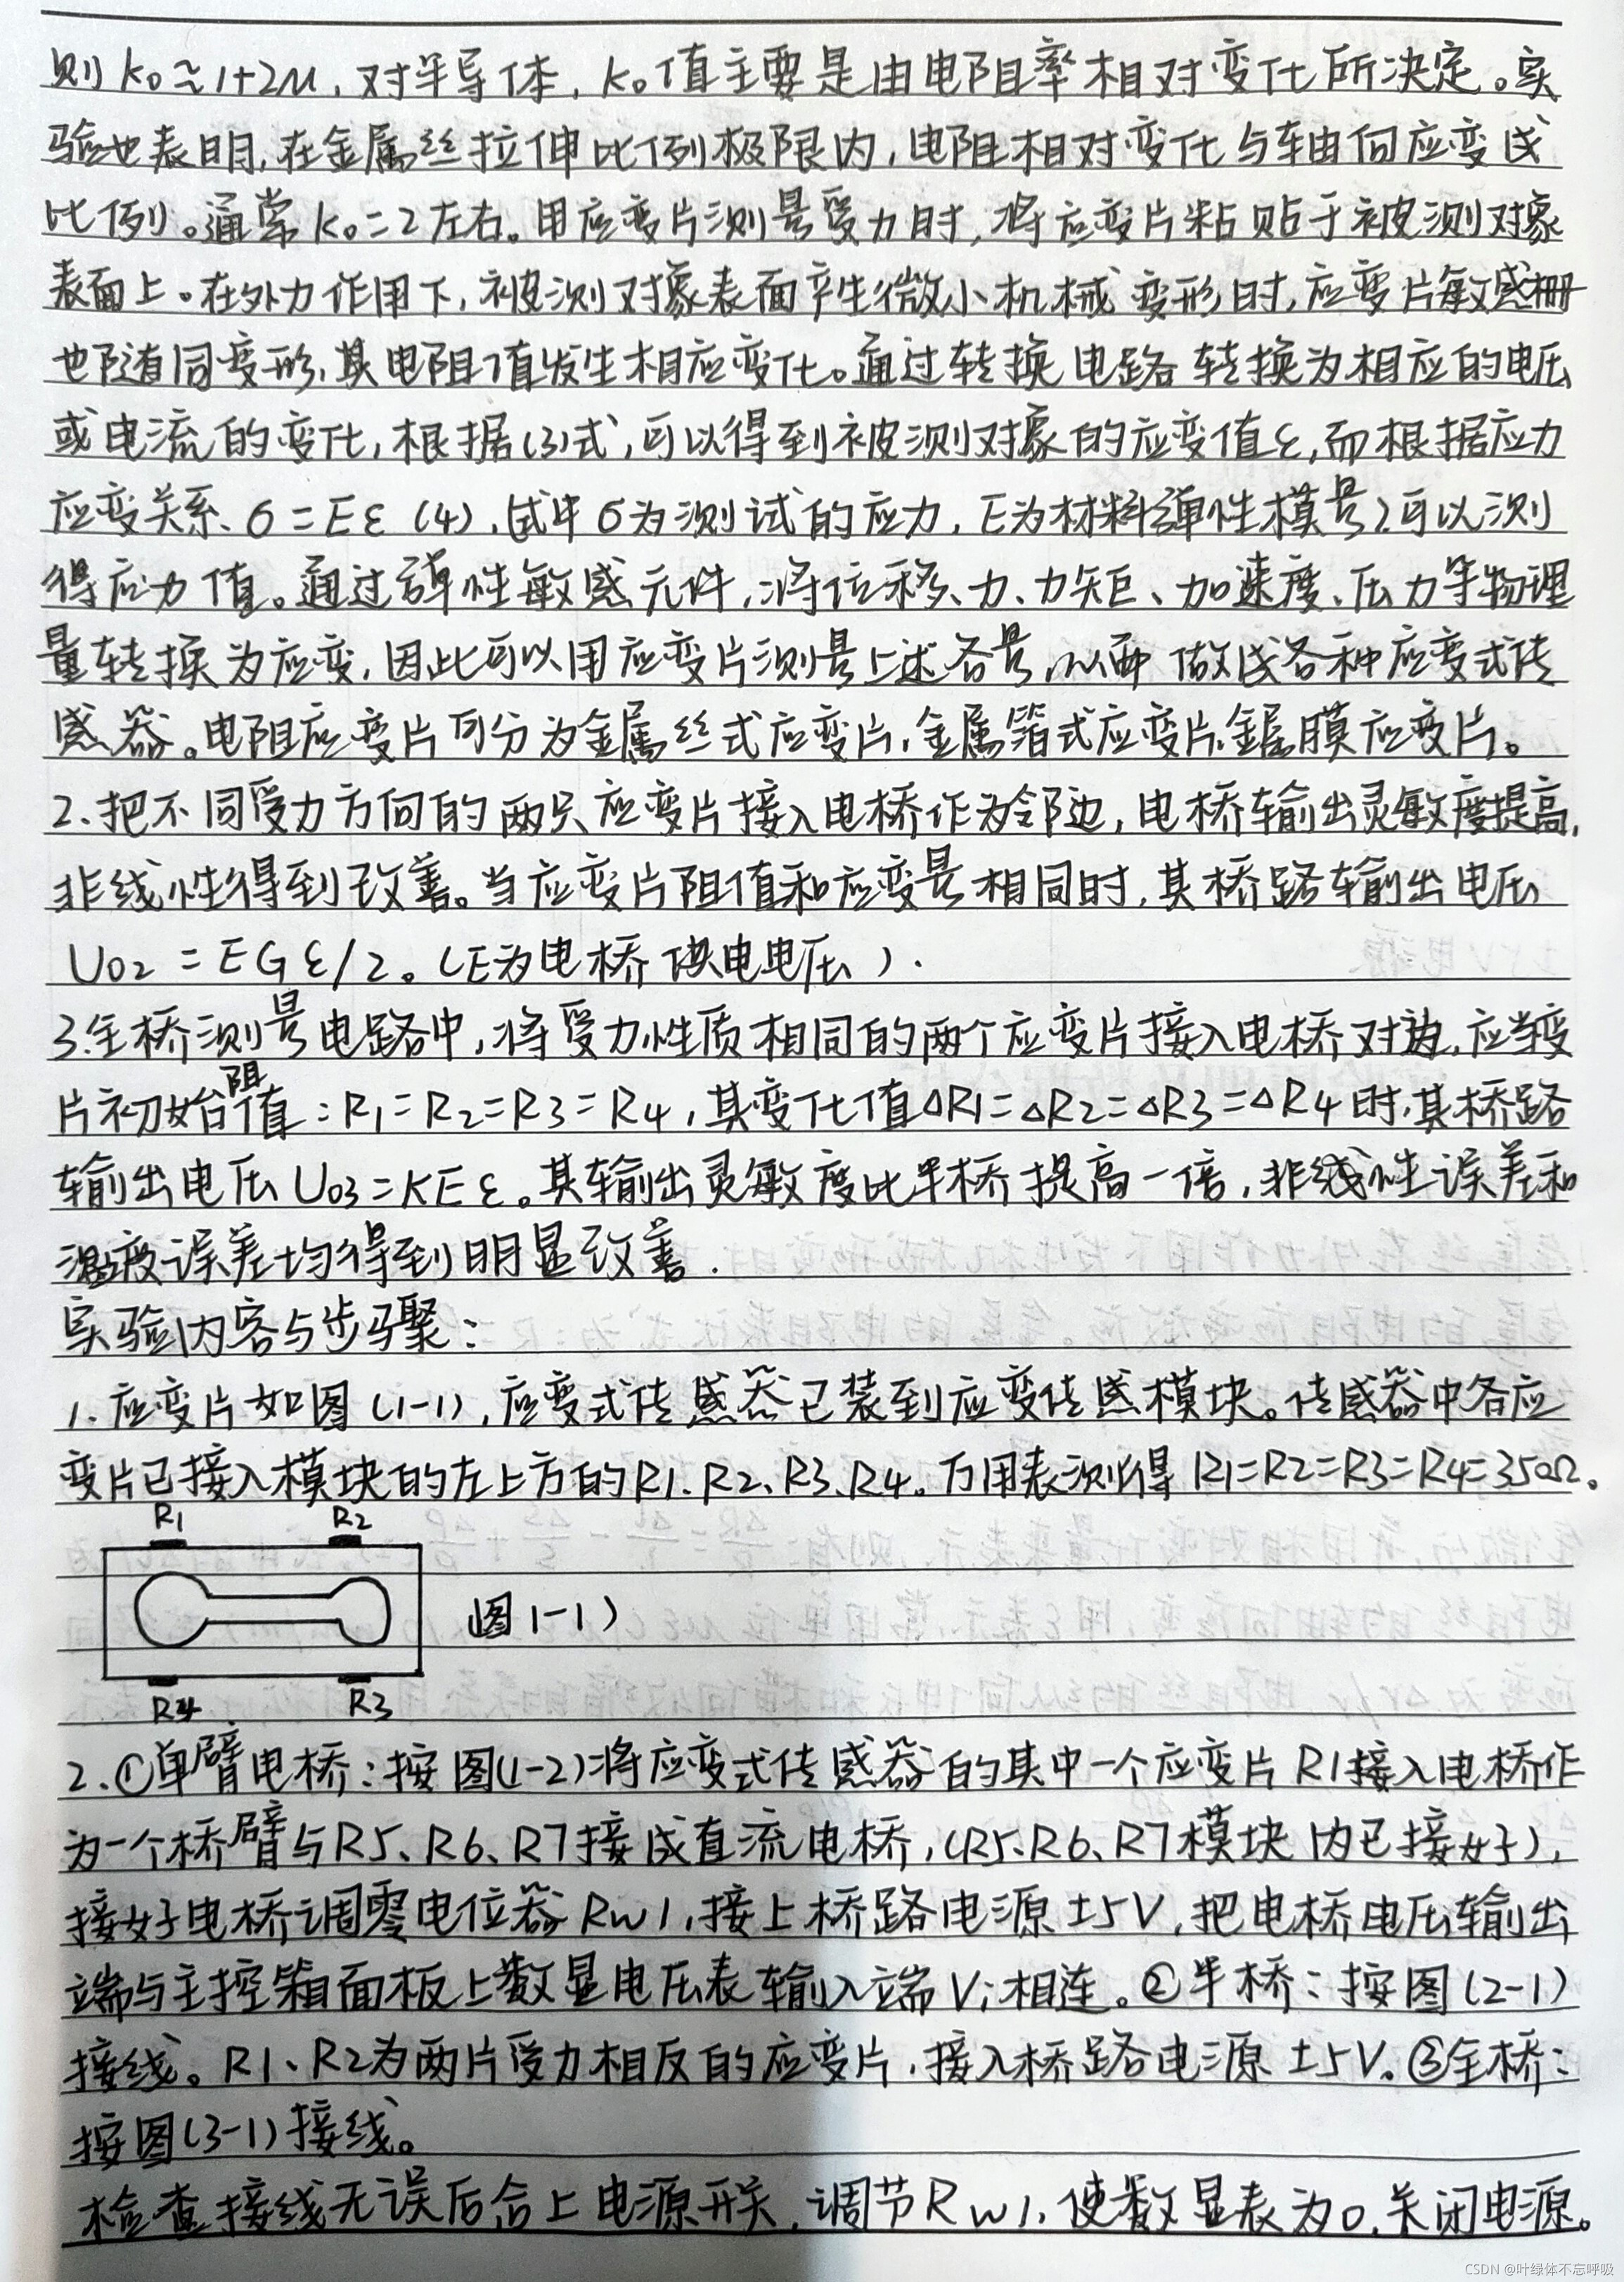 则K₀≈1+2μ，对半导体，K₀值主要是由电阻率相对变化所决定。实
验也表明，在金属丝拉伸比例极限内，电阻相对变化与轴向应变成
比例。通常K₀=2左右。用应变片测量受力时，将应变片粘贴于被测对象
表面上。在外力作用下，被测对象表面产生微小机械变形时，应变片敏感栅
也随同变形，其电阻值发生相应变化。通过转换电路转换为相应的电压
或电流的变化，根据(3)式，可以得到被测对象的应变值ε，而根据应力
应变关系、σ=Eε (4)，(式中σ为测试的应力，E为材料弹性模量)可以测
得应力值。通过弹性敏感元件，将位移、力、力矩、加速度、压力等物理
量转换为应变，因此可以用应变片测量上述各量，从而做成各种应变式传
感器。电阻应变片可分为金属丝式应变片，金属箔式应变片，金属膜应变片。
2.把不同受力方向的两只应变片接入电桥作为邻边，电桥输出灵敏度提高，
非线性得到改善。当应变片阻值和应变量相同时，其桥路输出电压
U02 = EGε/2。(E为电桥供电电压).
3.全桥测量电路中，将受力性质相同的两个应变片接入电桥对边，应当变
片初始阻值：R1=R2=R3=R4，其变化值△R1=△R2=△R3=△R4时，其桥路
输出电压U03=KEε。其输出灵敏度比半桥提高一倍，非线性误差和
温度误差均得到明显改善.
实验内容与步骤：
1.应变片如图(1-1)，应变式传感器已装到应变传感模块。传感器中各应
变片已接入模块的左上方的R1、R2、R3、R4。万用表测得R1=R2=R3=R4=350Ω。
R1 R2
(图1-1)
R4 R3
2.①单臂电桥：按图(1-2)将应变式传感器的其中一个应变片R1接入电桥作
为一个桥臂与R5、R6、R7接成直流电桥，(R5、R6、R7模块内已接好)，
接好电桥调零电位器Rw1，接上桥路电源±5V，把电桥电压输出
端与主控箱面板上数显电压表输入端Vi相连。②半桥：按图(2-1)
接线。R1、R2为两片受力相反的应变片，接入桥路电源±5V。③全桥：
按图(3-1)接线。
检查接线无误后合上电源开关，调节Rw1，使数显表为0，关闭电源。
CSDN @叶绿体不忘呼吸